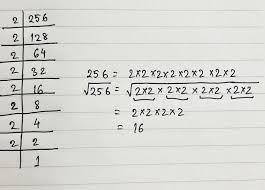 2 | 256
2 | 128
2 | 64
2 | 32
2 | 16
2 | 8
2 | 4
2 | 2
1
256 = 2×2×2×2×2×2×2×2
√256 = √2×2 × 2×2 × 2×2 × 2×2
= 2×2×2×2
= 16